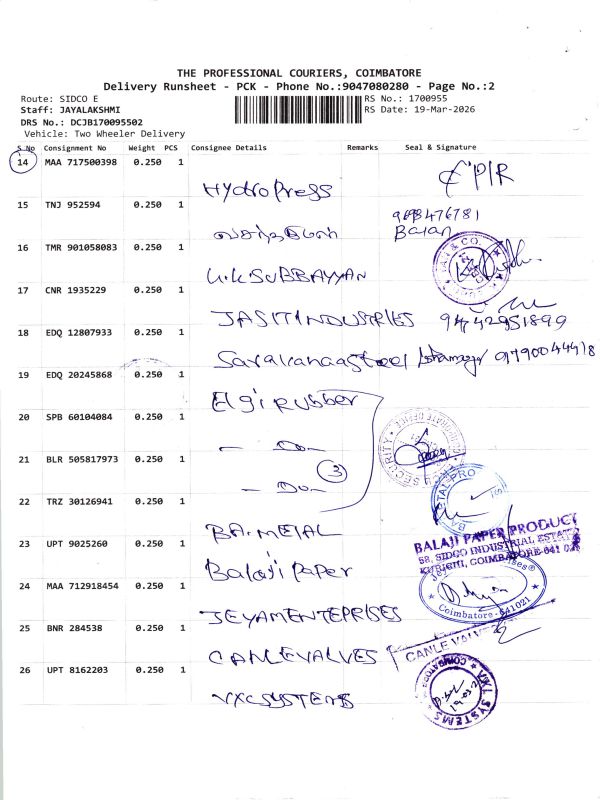 THE PROFESSIONAL COURIERS, COIMBATORE
Delivery Runsheet - PCK - Phone No.:9047080280 - Page No.:2
Route: SIDCO E
RS No.: 1700955
Staff: JAYALAKSHMI
RS Date: 19-Mar-2026
DRS No.: DCJB170095502
Vehicle: Two Wheeler Delivery
S No Consignment No Weight PCS Consignee Details Remarks Seal & Signature
14 MAA 717500398 0.250 1
HydroPress
15 TNJ 952594 0.250 1
Balan
16 TMR 901058083 0.250 1
U.K SUBBAYYAN
& CO.
17 CNR 1935229 0.250 1
INDUSTRIES 9442951899
18 EDQ 12807933 0.250 1
9790044418
19 EDQ 20245868 0.250 1
Elgi Rubber
20 SPB 60104084 0.250 1
- Do -
SECURITY
21 BLR 505817973 0.250 1
- Do -
3
22 TRZ 30126941 0.250 1
BA-METAL
23 UPT 9025260 0.250 1
BALAJI PAPER PRODUCT
58, SIDCO INDUSTRIAL ESTATE
KURICHI, COIMBATORE-641 021
Balaji Paper
24 MAA 712918454 0.250 1
Coimbatore - 641021
JEYAM ENTEPRISES
25 BNR 284538 0.250 1
CANLE VALVES
CANLE VALVES
26 UPT 8162203 0.250 1
VXL SYSTEMS